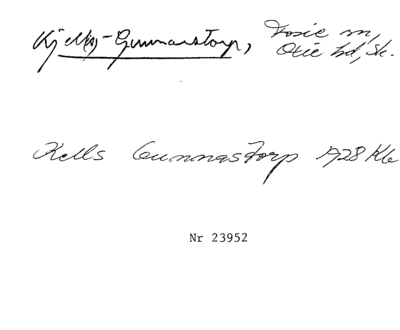 Kjells-Gunnarstorp, Tosie sn,
Oxie hd, Sk.
Kells Gunnnastorp 1928 Kb
Nr 23952